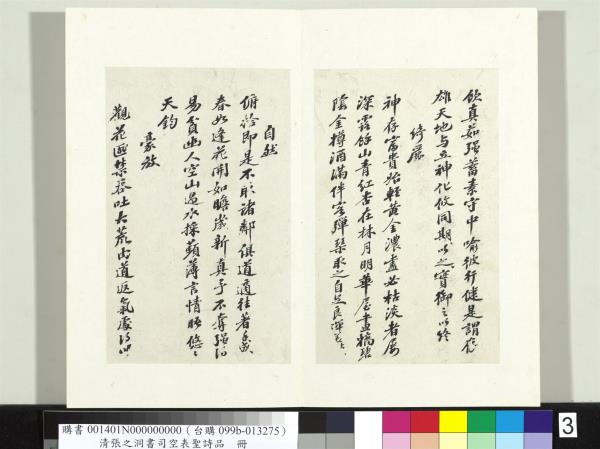 飲真茹強蓄素守中喻彼行健是謂存
雄天地与立神化攸同期以之實御之以終
綺麗
神存富貴始輕黃金濃盡必枯淡者屢
深露餘山青紅杏在林月明華屋畫橋碧
陰金樽酒滿伴客彈琴取之自足良殫美
自然
俯拾即是不取諸鄰俱道適往著手成
春如逢花開如瞻歲新真予不奪強得
易貧幽人空山過水採蘋薄言情晤悠〻
天鈞
豪放
觀花匪禁吞吐大荒由道返氣處得以
購書 001401N000000000 (台購 099b-013275)
清張之洞書司空表聖詩品 冊
3